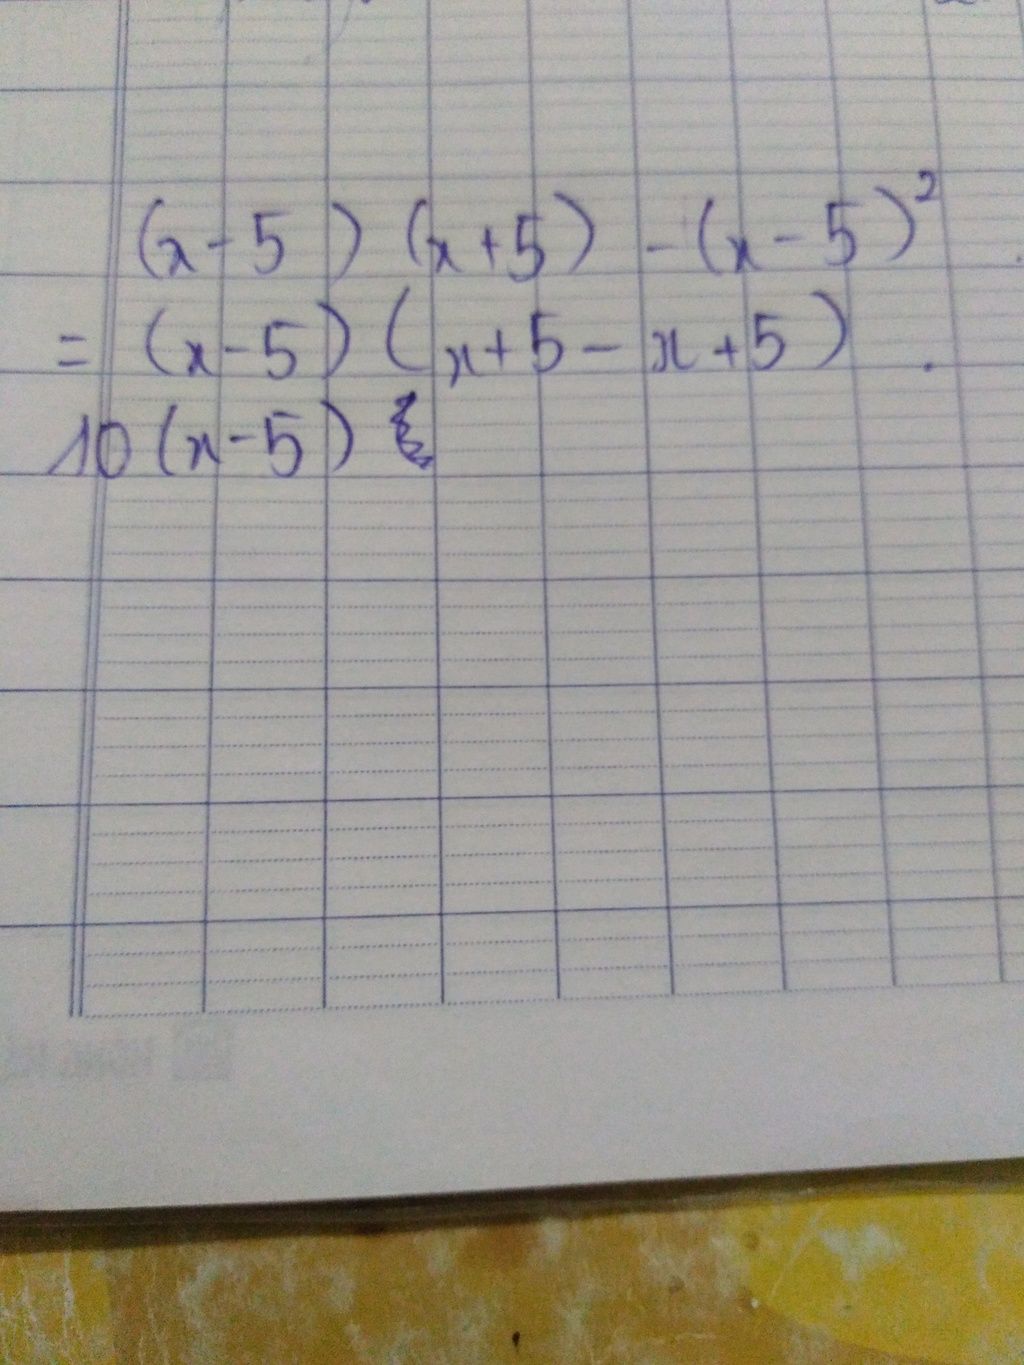 (x-5) (x+5) - (x-5)²
= (x-5) (x+5-x+5)
10 (x-5)